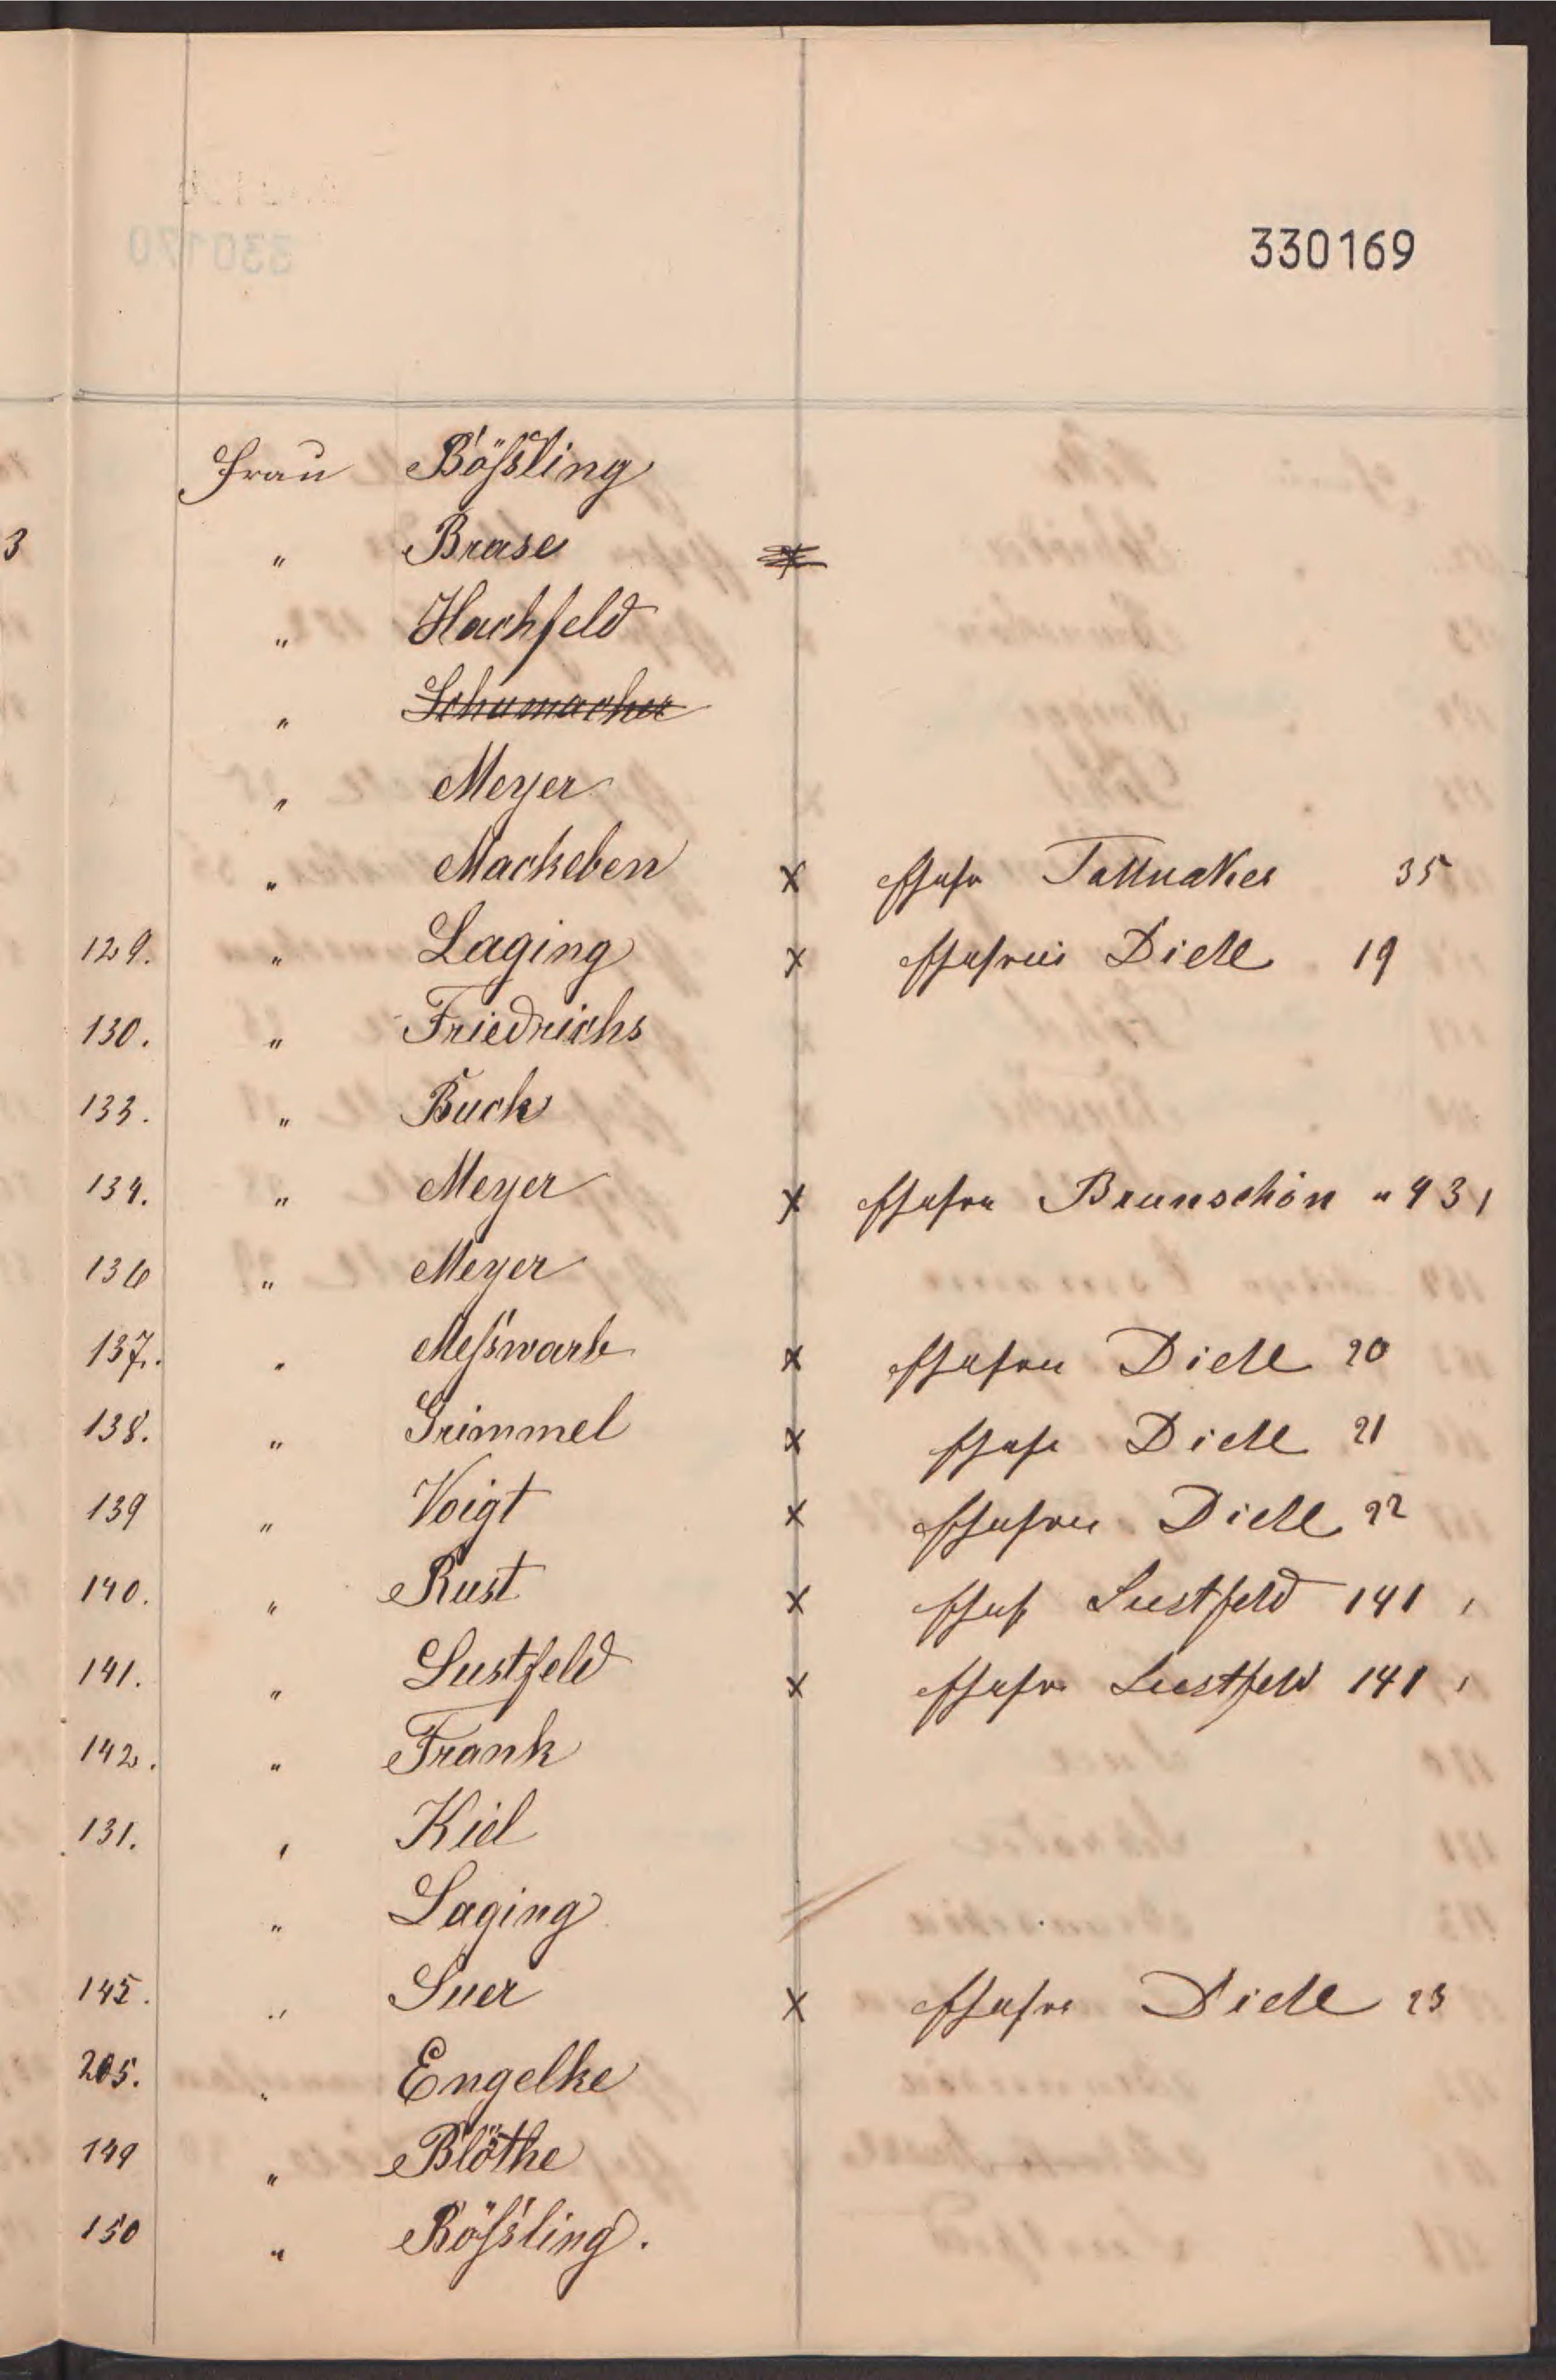 330169
Frau Bößling
3 " Brase
" Hachfeld
" Schumacher
" Meyer
" Mackeben x Ehefr 35
129. " Laging x Ehefrau Diell 19
130. " Friedrichs
133. " Buck
134. " Meyer x Ehefra Brunschön " 43
136 " Meyer
137. " Meßwarb x Ehefrau Diell 20
138. " Grimmel x Ehefr Diell 21
139 " Voigt x Ehefrau Diell 22
140. " Rust x Ehefr Lustfeld 141
141. " Lustfeld x Ehefr Lustfeld 141
142. " Frank
131. " Kiel
" Laging
145. " Suer x Ehefra Diell 23
205. " Engelke
149 " Blöthe
150 " Rößling.